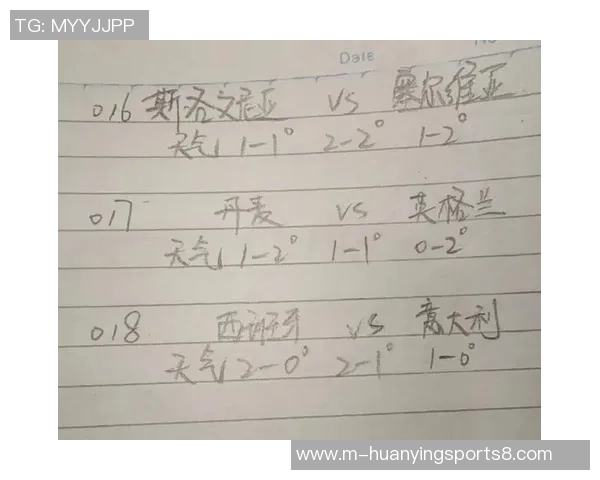 TG: MYYJJPP
Date
016 斯洛文尼亚 VS 塞尔维亚
天气 1-1° 2-2° 1-2°
017 丹麦 VS 英格兰
天气 1-2° 1-1° 0-2°
018 西班牙 VS 意大利
天气 2-0° 2-1° 1-0°
www.m-huanyingsports8.com